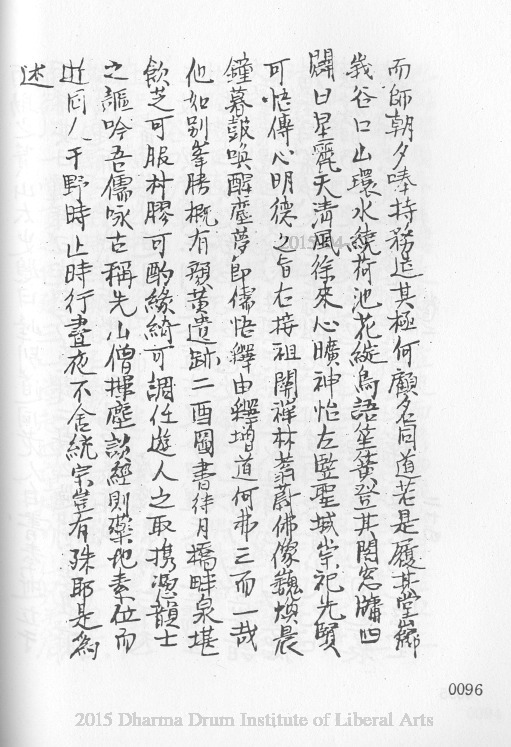 而師朝夕唪持務造其極何顧名同道若是履其堂嶽
峩谷口山環水繞荷池花綻鳥語笙簧登其閣窓牖四
闢日星麗天清風徐來心曠神怡左竪聖域崇祀先賢
可悟傳心明德之旨右接祖關禪林蓊蔚佛像巍煥晨
鐘暮鼓喚醒塵夢即儒悟釋由釋增道何弗三而一哉
他如別峯勝概有頴黄遺跡二酉圖書待月橋畔泉堪
飲芝可服村膠可酌緑綺可調任遊人之取携憑韻士
之謳吟吾儒咏古稱先山僧揮塵談經則藥地素位而
逝同人于野時止時行晝夜不舍統宗豈有殊耶是為
述
2015-04-
0096
2015 Dharma Drum Institute of Liberal Arts